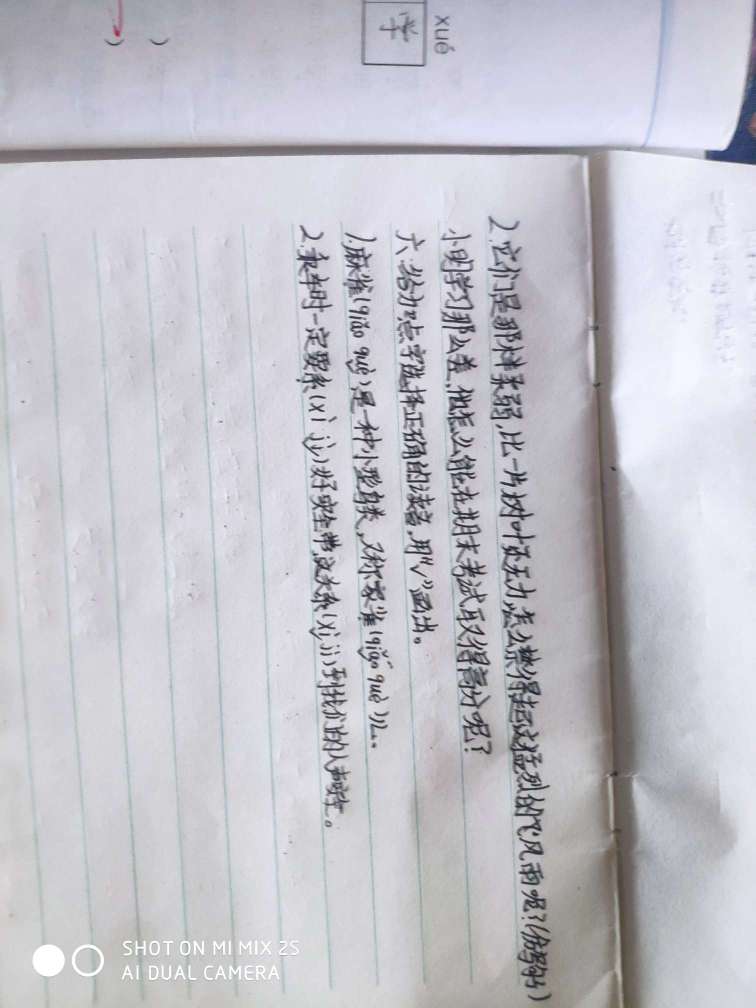 xué
学
2.它们是那样柔弱,比一片树叶还无力,怎么禁得起这猛烈的风雨呢?(仿写句)
小明学习那么差,他怎么能在期末考试取得高分呢?
六.给加点字选择正确的读音,用"√"画出。
1.麻雀(qiǎo què)是一种小型鸟类,又称家雀(qiǎo què)儿。
2.乘车时一定要系(xì jì)好安全带,这关系(xì jì)到我们的人身安全。
SHOT ON MI MIX 2S
AI DUAL CAMERA